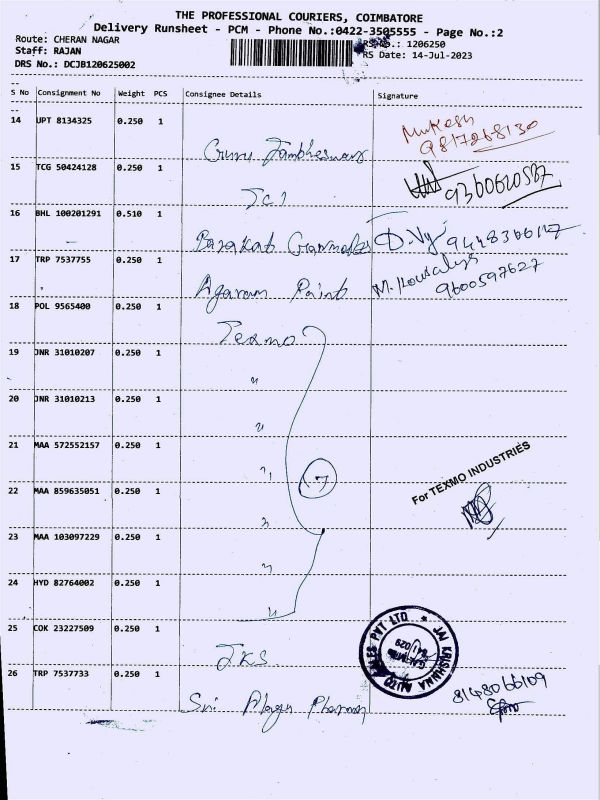 THE PROFESSIONAL COURIERS, COIMBATORE
Delivery Runsheet - PCM - Phone No.:0422-3505555 - Page No.:2
Route: CHERAN NAGAR
Staff: RAJAN
DRS No.: DCJB120625002
1206250
RS Date: 14-Jul-2023
S No Consignment No Weight PCS Consignee Details Signature
14 UPT 8134325 0.250 1 Guru Jambheswar Mukesh 9817268130
15 TCG 50424128 0.250 1 TCI 9360620587
16 BHL 100201291 0.510 1 D.Vy 9448366127
17 TRP 7537755 0.250 1 Agaram Paint M. Kousalya 9600597627
18 POL 9565400 0.250 1 Texmo
19 JNR 31010207 0.250 1 "
20 JNR 31010213 0.250 1 "
21 MAA 572552157 0.250 1 "
7
For TEXMO INDUSTRIES
22 MAA 859635051 0.250 1 "
23 MAA 103097229 0.250 1 "
24 HYD 82764002 0.250 1 "
25 COK 23227509 0.250 1 JKS
JAI KRISHNAA AUTO SALES PVT LTD
641 029
26 TRP 7537733 0.250 1 Sri Alagu Pharmacy 8148066109